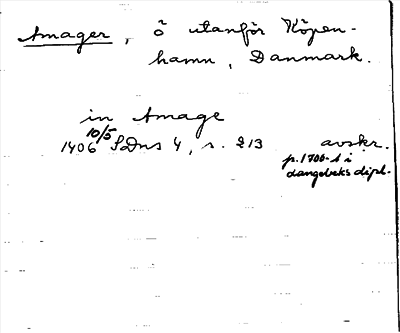 Amager, ö utanför Köpen-
hamn, Danmark.
in Amage
10/5
1406 SDns 4, s. 213 avskr.
p. 1700-t i
Langebeks dipl.